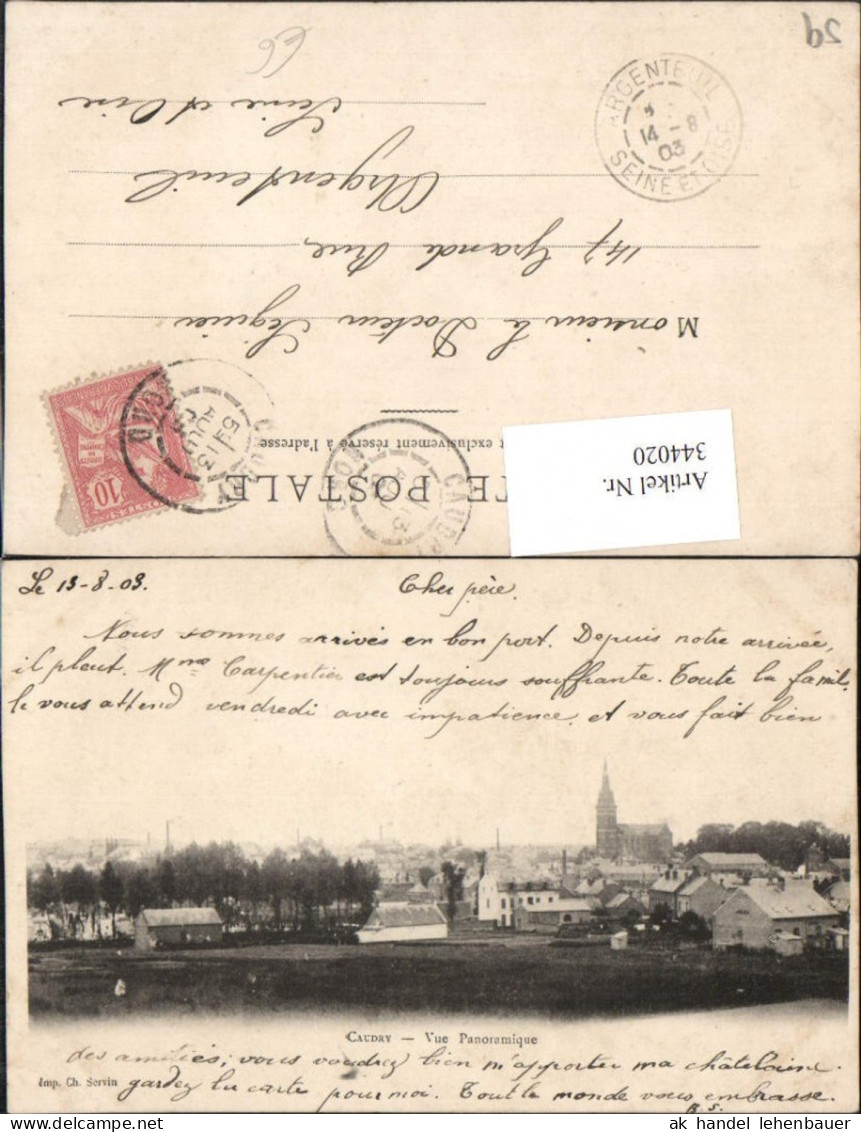 59
66
CARTE POSTALE
exclusivement réservé à l'adresse
Monsieur le Docteur Séguier
147 Grande Rue,
Argenteuil
Seine et Oise
ARGENTEUIL
14 - 8
03
SEINE ET OISE
CAUDRY
5E 13
AOUT
03
NORD
CAUDRY
13
NORD
10
Artikel Nr.
344020
Le 13-8-03.
Cher père.
Nous sommes arrivés en bon port. Depuis notre arrivée,
il pleut. Mme Carpentier est toujours souffrante. Toute la famil.
le vous attend vendredi avec impatience et vous fait bien
CAUDRY — Vue Panoramique
des amitiés; vous voudrez bien m'apporter ma châtelaine.
Imp. Ch. Servin
gardez la carte pour moi. Tout le monde vous embrasse.
B. S.
www.delcampe.net
ak handel lehenbauer